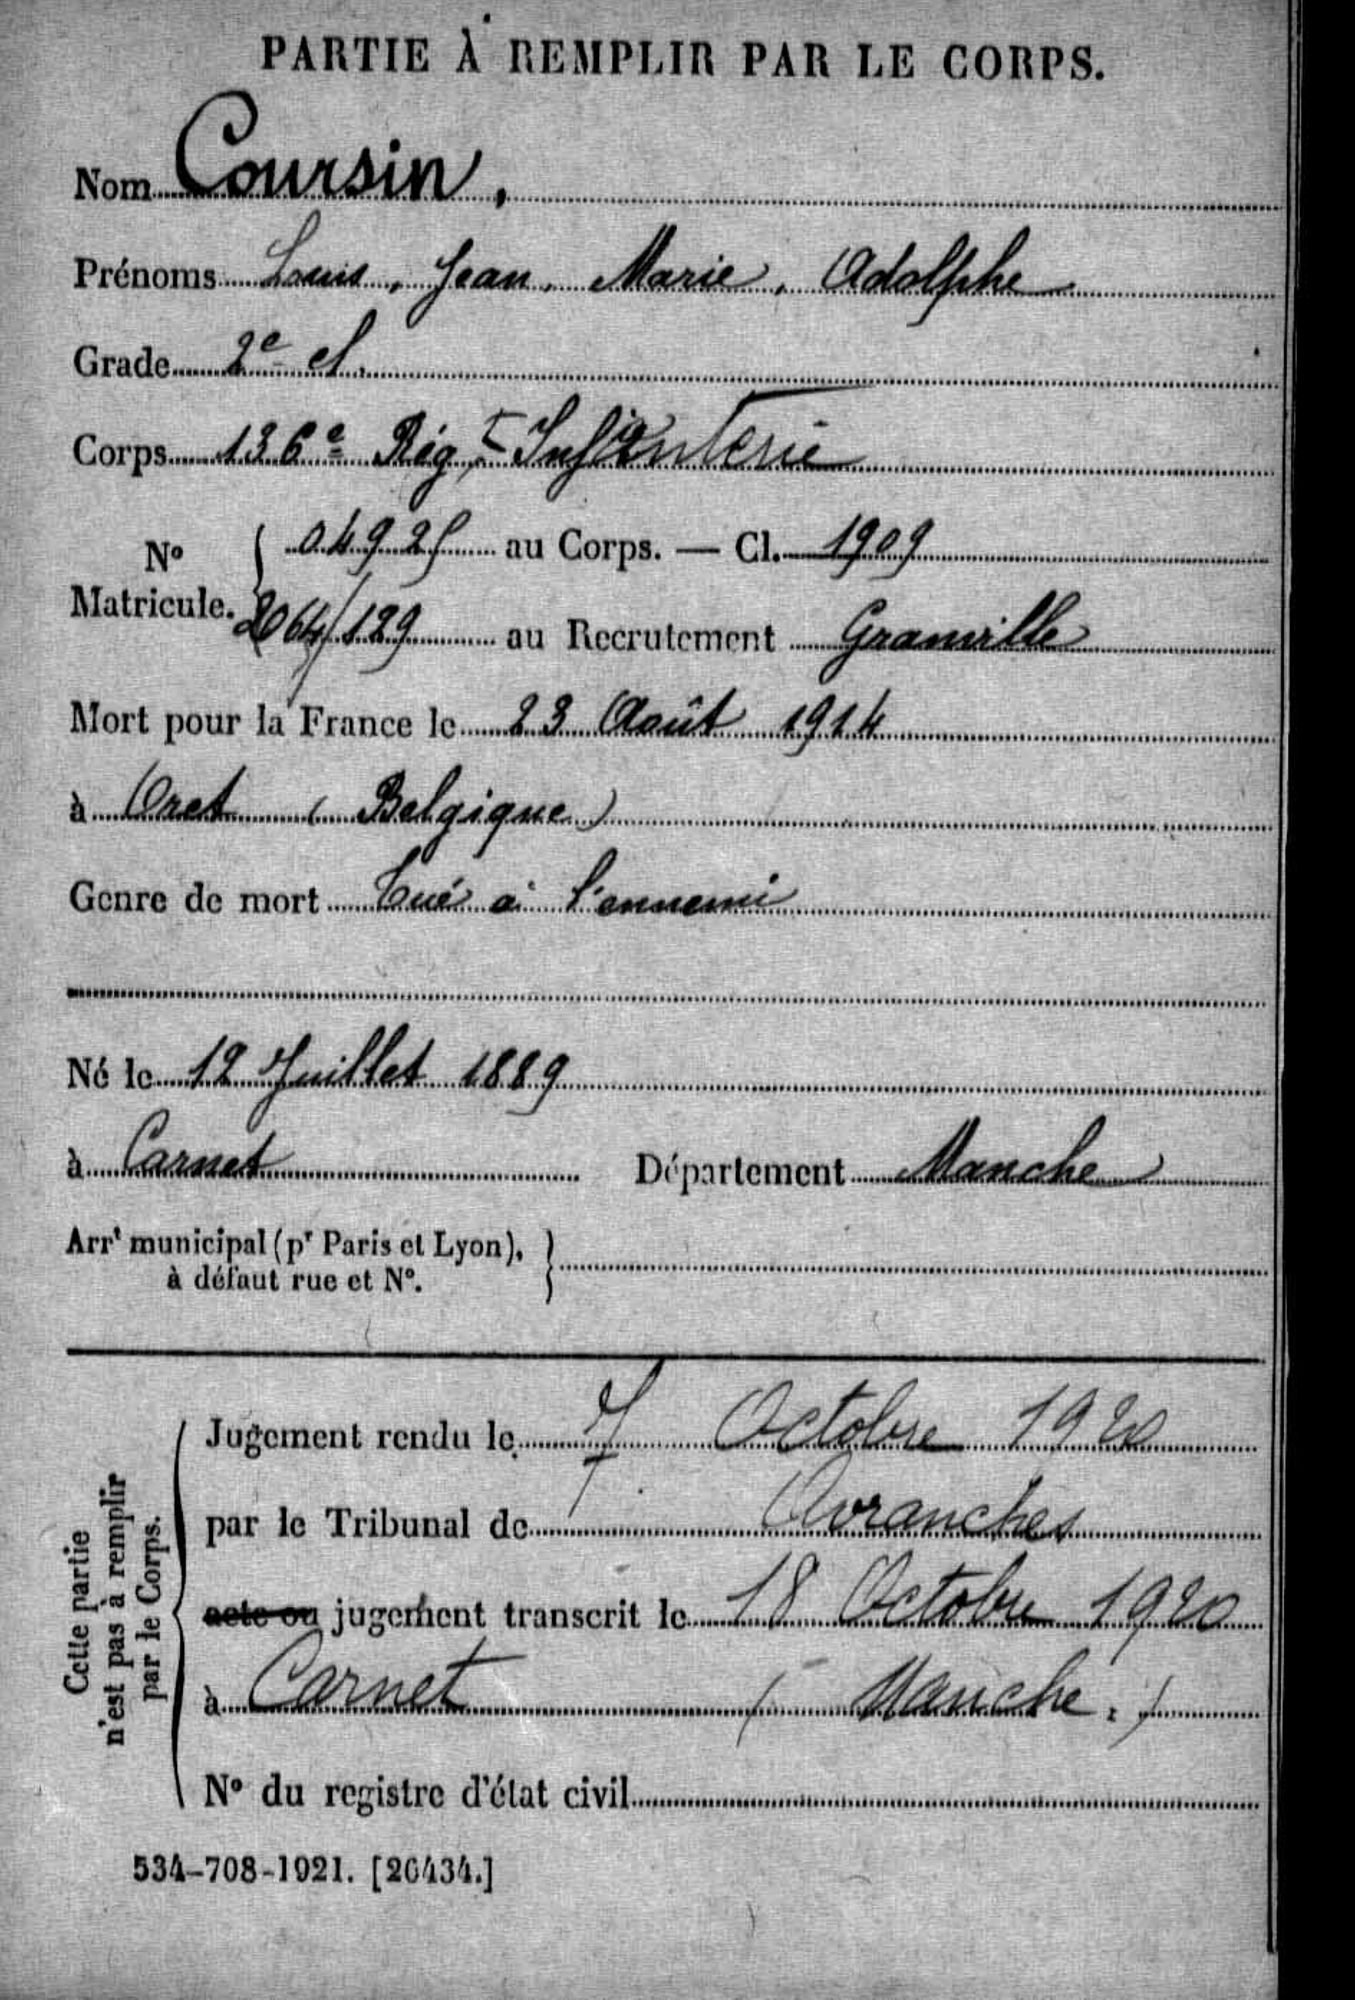 PARTIE À REMPLIR PAR LE CORPS.
Nom Coursin,
Prénoms Louis, Jean, Marie, Adolphe
Grade 2e cl.
Corps 136e Rég.t Infanterie
No Matricule. { 04925 au Corps. — Cl. 1909
2064/129 au Recrutement Granville
Mort pour la France le 23 Août 1914
à Oret (Belgique)
Genre de mort Tué à l'ennemi
Né le 12 Juillet 1889
à Carnet Département Manche
Arrt municipal (pr Paris et Lyon), }
à défaut rue et No.
Cette partie
n'est pas à remplir
par le Corps.
Jugement rendu le 7 Octobre 1920
par le Tribunal de Avranches
acte ou jugement transcrit le 18 Octobre 1920
à Carnet (Manche.)
No du registre d'état civil
534-708-1921. [26434.]